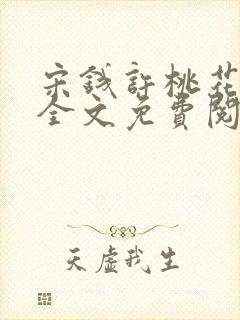 宋钱許桃花
全文免費閱
天虛我生